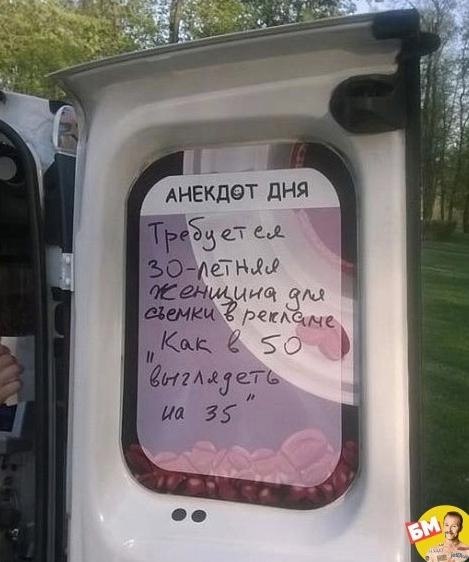 АНЕКДОТ ДНЯ
Требуется
30-летняя
женщина для
съемки в рекламе
„Как в 50
выглядеть
на 35"
БМ